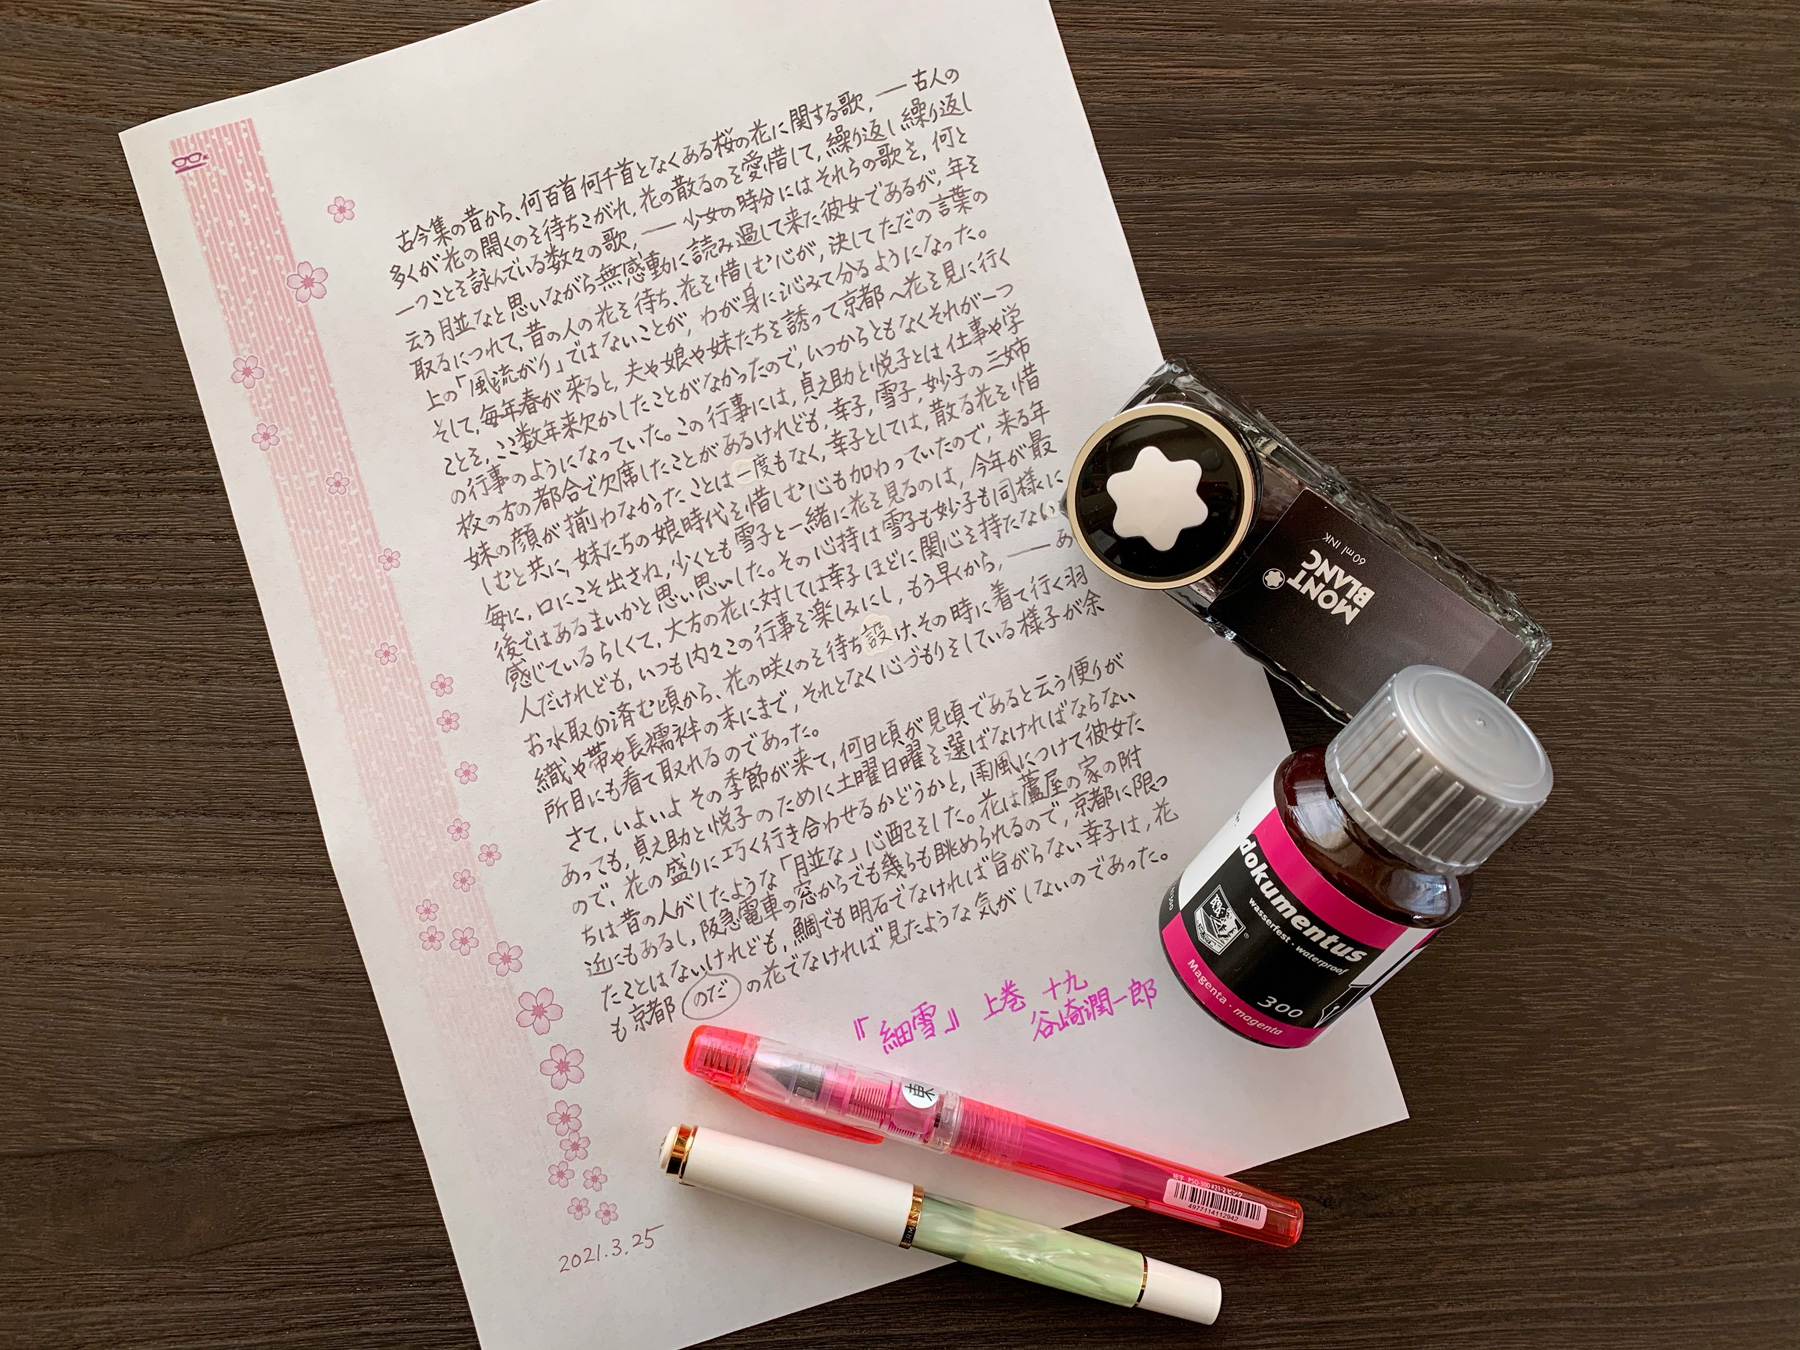 古今集の昔から、何百首何千首となくある桜の花に関する歌、── 古人の
多くが花の開くのを待ちこがれ、花の散るのを愛惜して、繰り返し繰り返し
一つことを詠んでいる数々の歌、── 少女の時分にはそれらの歌を、何と
云う月並なと思いながら無感動に読み過して来た彼女であるが、年を
取るにつれて、昔の人の花を待ち、花を惜しむ心が、決してただの言葉の
上の「風流がり」ではないことが、わが身に沁みて分るようになった。
そして、毎年春が来ると、夫や娘や妹たちを誘って京都へ花を見に行く
ことを、ここ数年来欠かしたことがなかったので、いつからともなくそれが一つ
の行事のようになっていた。この行事には、貞之助と悦子とは仕事や学
校の方の都合で欠席したことがあるけれども、幸子、雪子、妙子の三姉
妹の顔が揃わなかったことは一度もなく、幸子としては、散る花を惜
しむと共に、妹たちの娘時代を惜しむ心も加わっていたので、来る年
毎に、口にこそ出され、少くとも雪子と一緒に花を見るのは、今年が最
後ではあるまいかと思い思いした。その心持は雪子も妙子も同様に
感じているらしくて、大方の花に対しては幸子ほどに関心を持たない
人だけれども、いつも内々この行事を楽しみにし、もう早くから、── あ
お水取の済む頃から、花の咲くのを待ち設け、その時に着て行く羽
織や帯や長襦袢の末にまで、それとなく心づもりをしている様子が余
所目にも看て取れるのであった。
さて、いよいよその季節が来て、何日頃が見頃であると云う便りが
あっても、貞之助と悦子のために土曜日曜を選ばなければならない
ので、花の盛りに巧く行き合わせるかどうかと、雨風につけて彼女た
ちは昔の人がしたような「月並な」心配をした。花は蘆屋の家の附
近にもあるし、阪急電車の窓からでも幾らも眺められるので、京都に限っ
たことはないけれども、鯛でも明石でなければ旨がらない幸子は、花
も京都 のだ の花でなければ見たような気がしないのであった。
『細雪』 上巻 十九
谷崎潤一郎
2021.3.25
MONT
BLANC
60ml INK
dokumentus
wasserfest · waterproof
300
Magenta · magenta
4977114112942